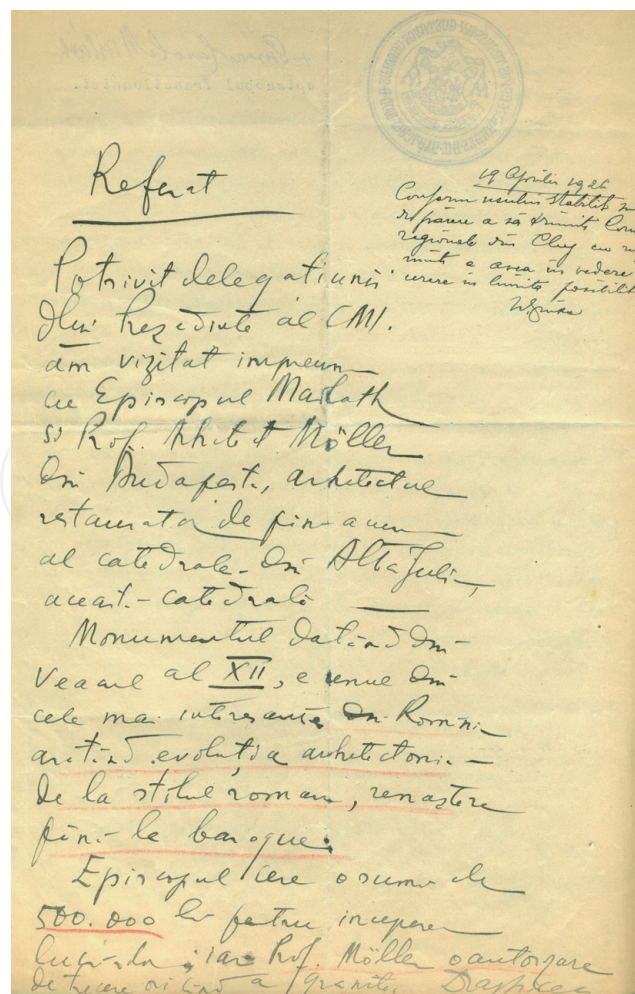 Referat
19 Aprilie 1926
Conform usului stabilit
repaere a să trimite Com
regionale din Cluj cu
a avea în vedere
cerere in limita posibilit
Potrivit delegatiunii
dlui Prezedinte al CMI.
am vizitat impreuna
cu Episcopul Mailath
si Prof. Arhitect Möller
din Budapesta, arhitectul
restaurator de pina acum
al catedralei din Alba Julia,
aceasta catedrala
Monumentul datând din
Veacul al XII, e unul din
cele mai interesante din Romania
aratând evoluția arhitectonica
de la stilul roman, renaștere
pina la baroque.
Episcopul cere o suma de
500.000 lei pentru inceperea
lucrarilor, iar Prof. Möller o autorizare
de trecere oricând a granitei.